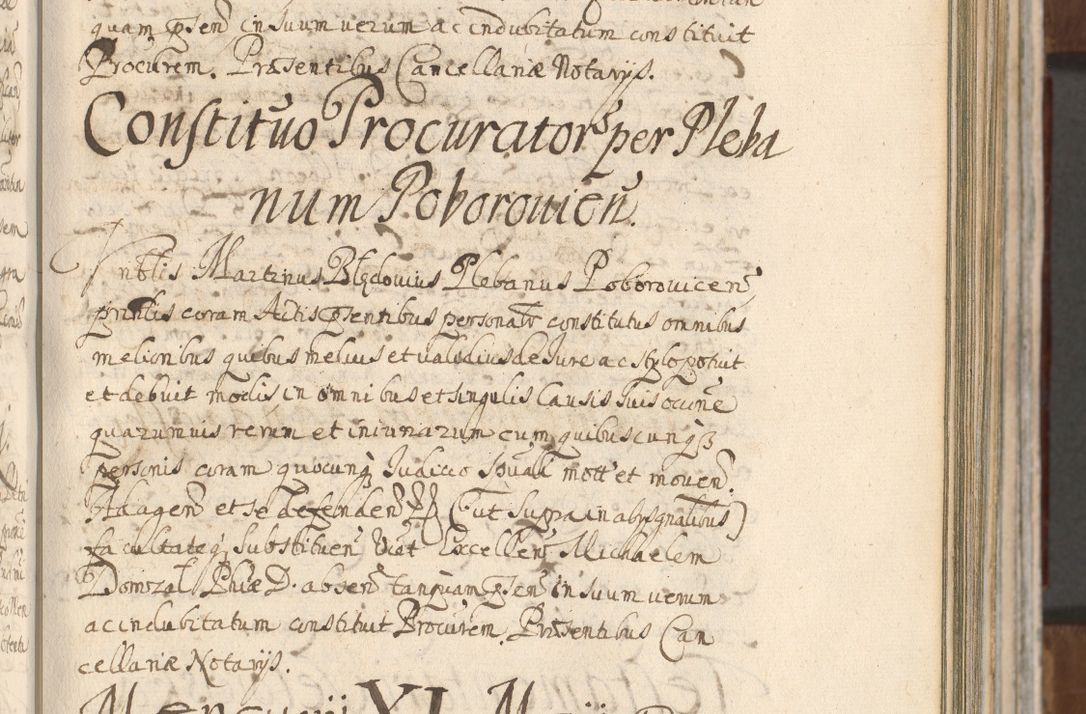 quam pñsen in suum verum ac indubitatum constituit
Procurem. Præsentibus Cancellariæ Notarÿs.
Constituo Procurators per Pleba
num Poborouien.
nobilis Martinus Blędouius Plebanus Poborouicen
coram Actis pñsentibus personalr constitutus omnibus
melioribus quibus melius et ualidius de Jure ac stylo potuit
et debuit modis in omnibus et singulis Causis suis
quarumuis rerum et iniuriarum cum quibuscunqȝ
personis coram quocunqȝ Judicio et mouen.
Ad agen et se defenden (ut supra in alÿs
facultateqȝ substituen Excellen Michaelem
Domozal Phiæ D. absen tanquam pñsen in suum verum
ac indubitatum constituit Procurem. Præsentibus Can
cellariæ Notarÿs.
XI